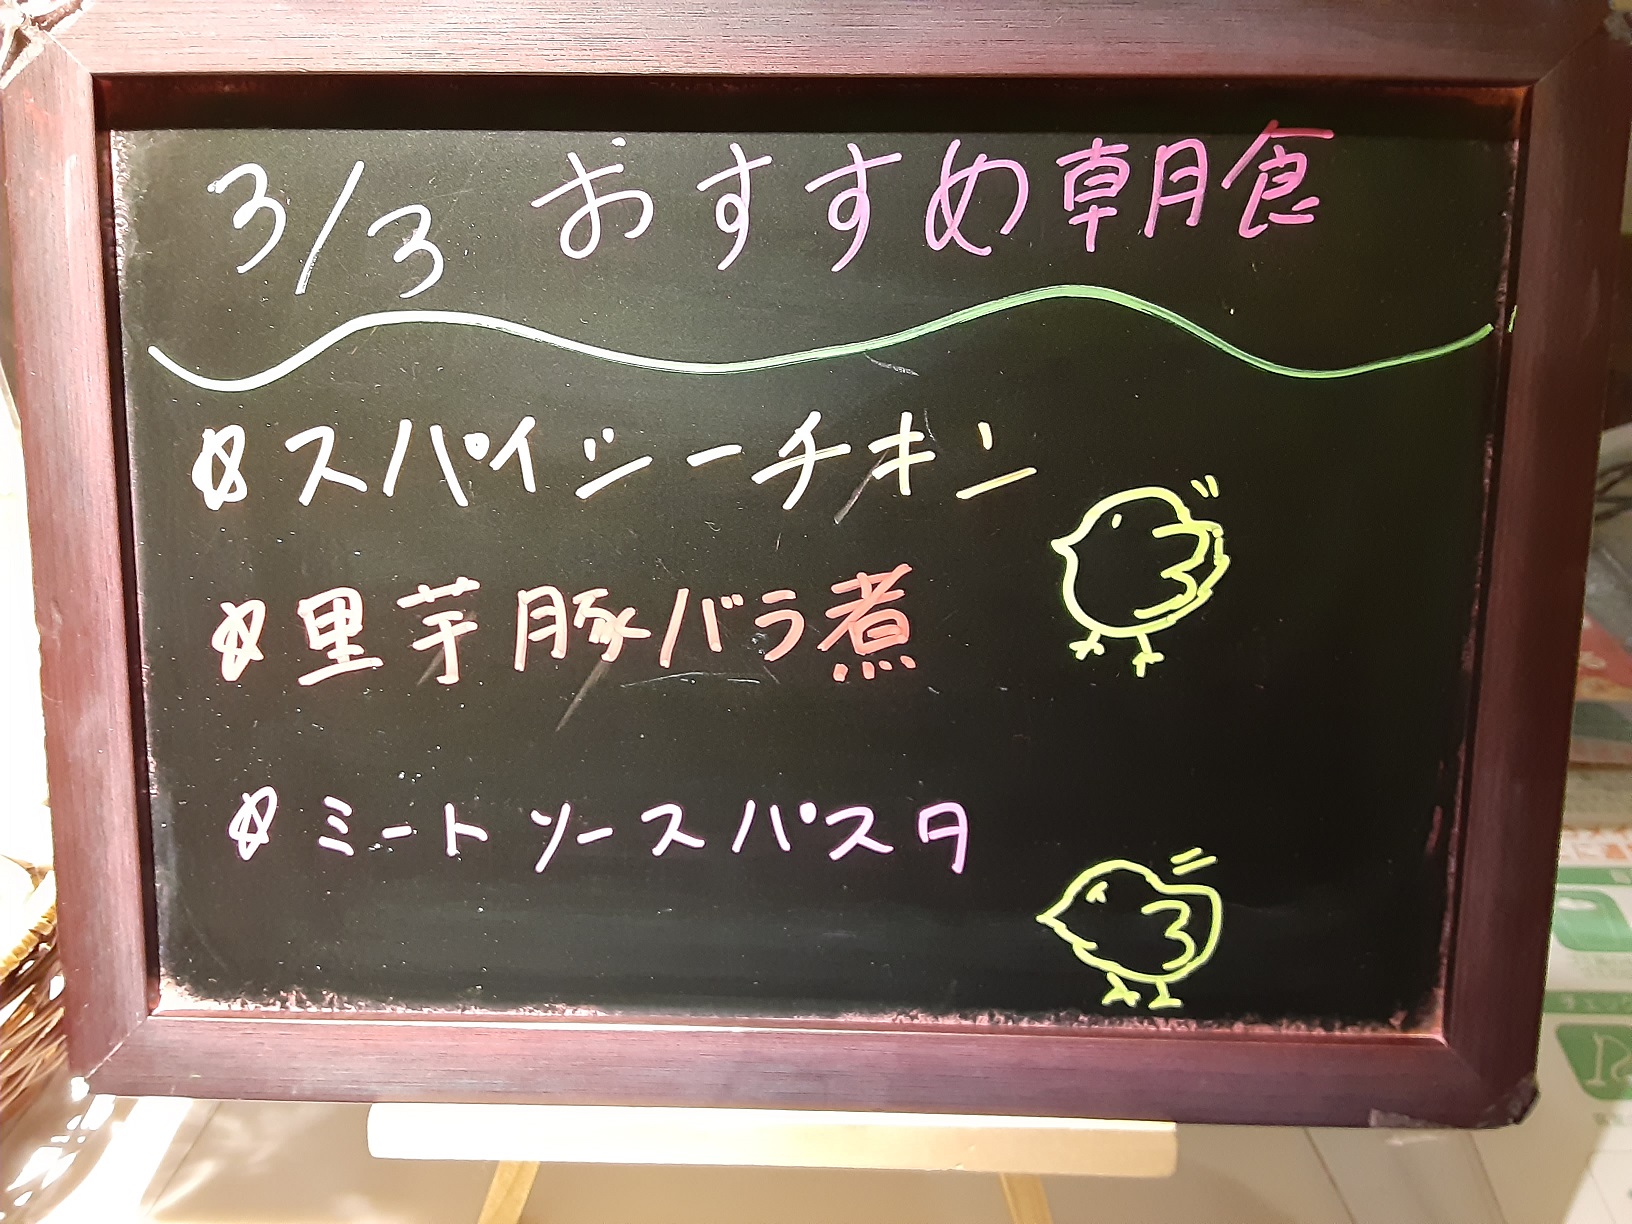 3/3 おすすめ朝食
☆スパイシーチキン
☆里芋豚バラ煮
☆ミートソースパスタ